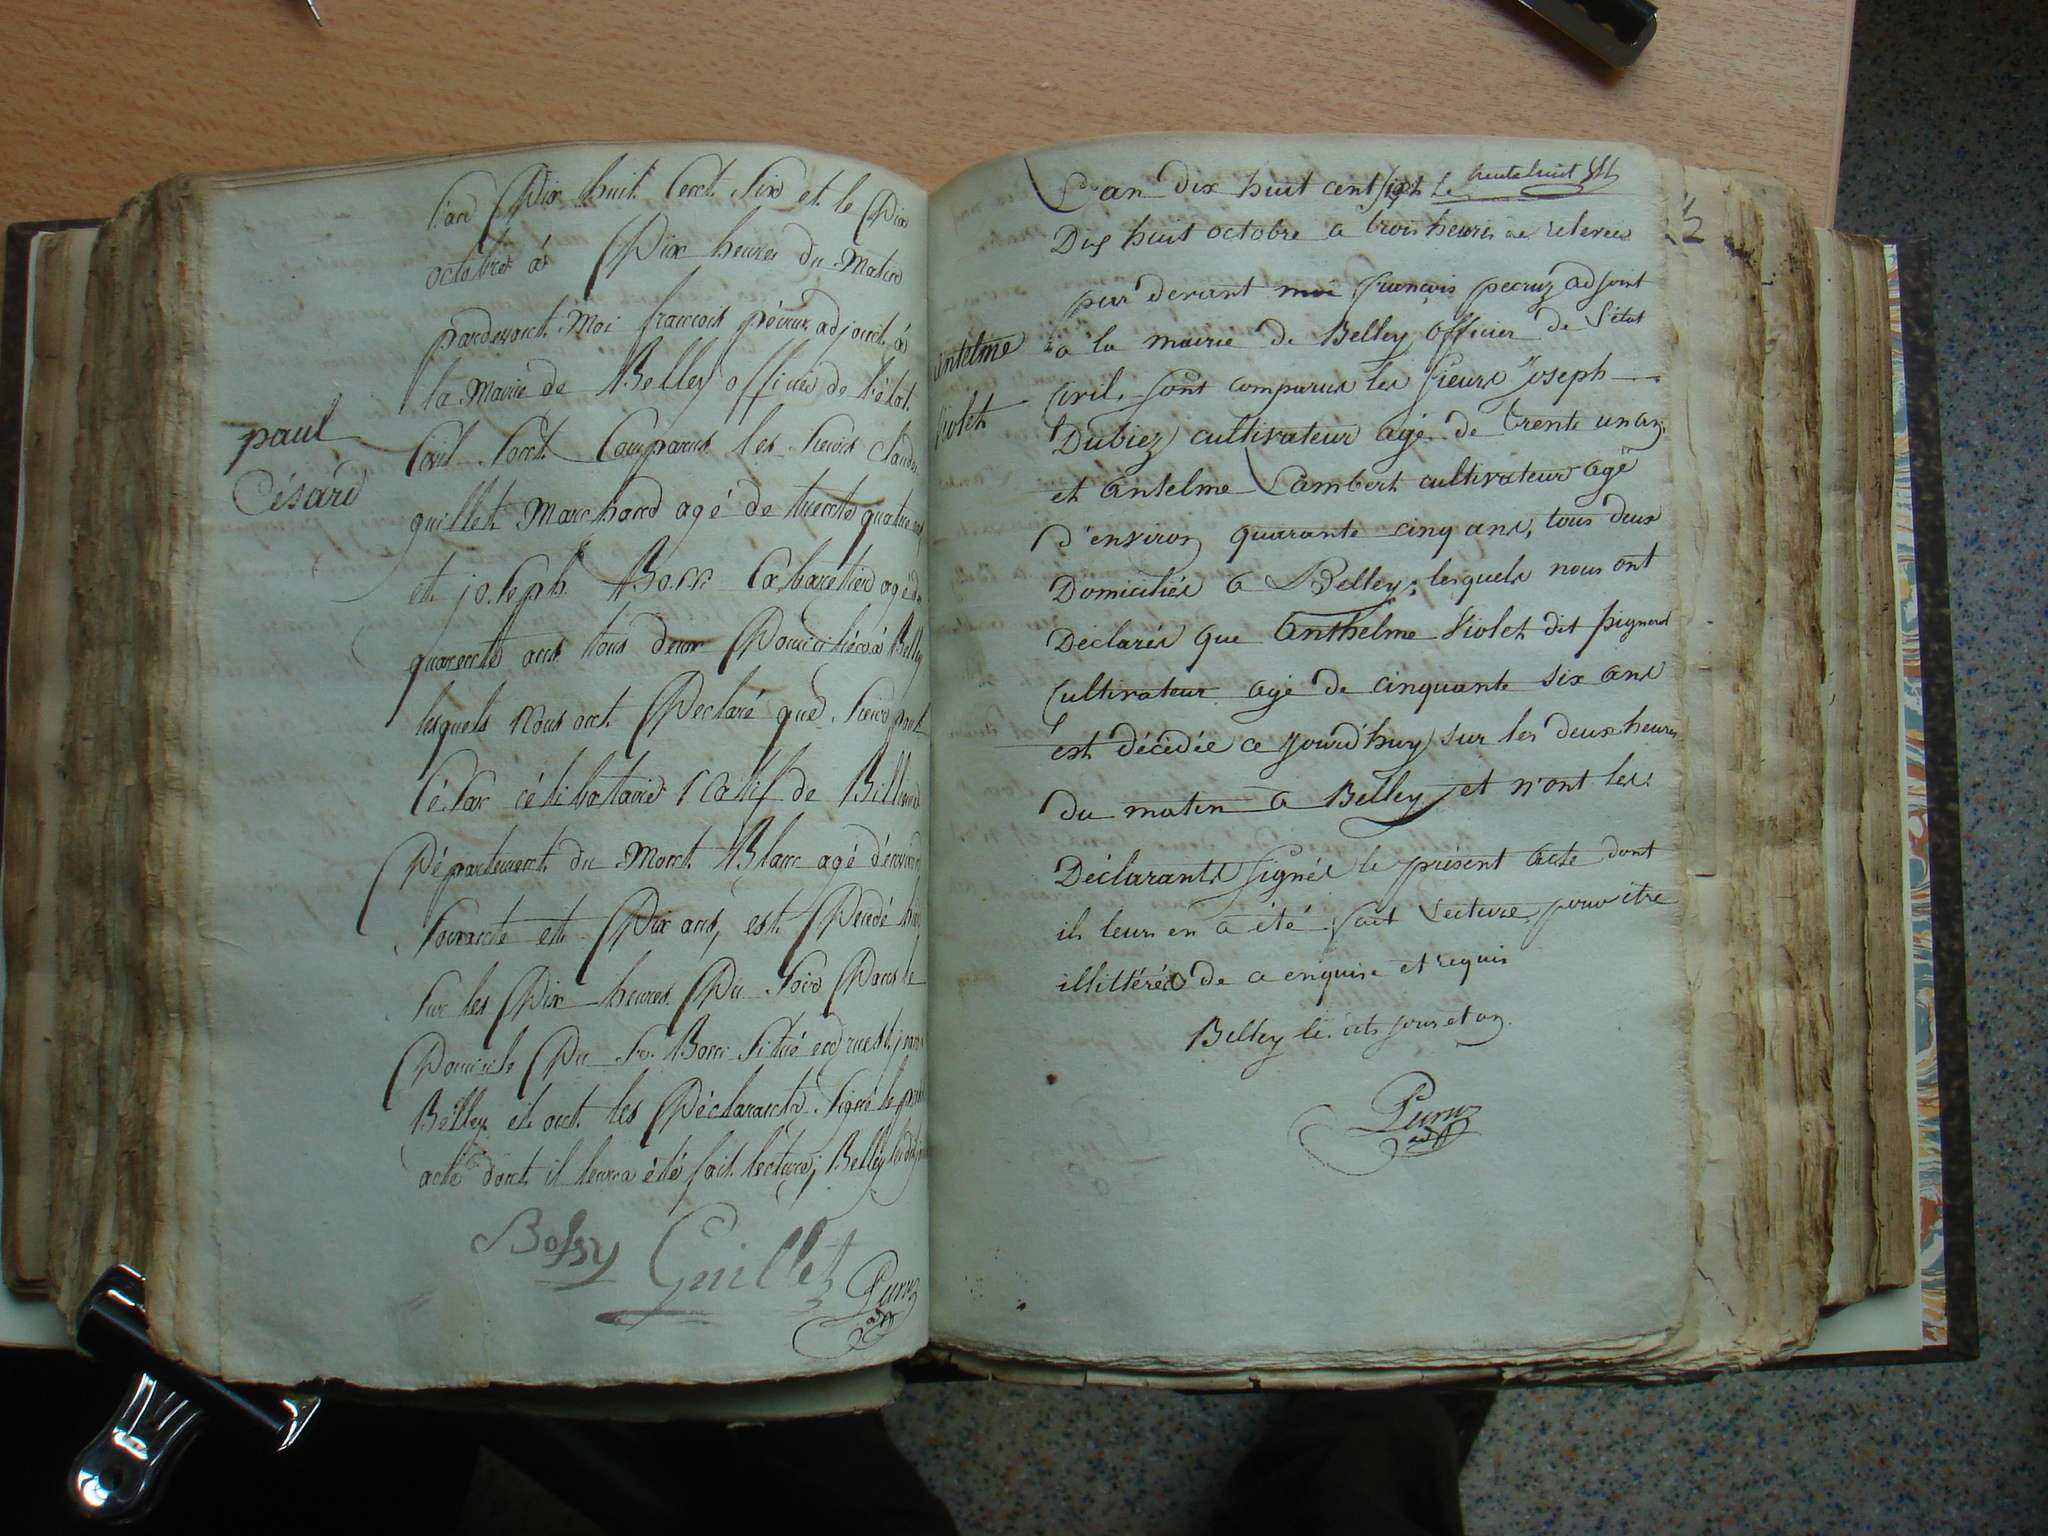 paul
Césard
L'an Dix huit Cent Six et le Dix
octobre á Dix heures du Matin
pardevant Moi francois pécruz adjoint á
la Mairie de Belley officier de l'état
Civil Sont Comparus les Sieurs Claude
guillet Marchand agé de trente quatre ans
et joseph Bossi Cabaretier agé de
quarente ans tous deux Domiciliés á Belley
lesquels Nous ont Declaré que Sieur paul
César célibataire Natif de
Département du Mont Blanc agé d'environ
Soixante et Dix ans, est Décédé hier
Sur les Dix heures Du Soir Dans le
Domicile Du Sr. Bossi Situé en rue St jean
Belley et ont les Déclarants Signé le présent
acte dont il leur a été fait lecture, Belley
Bossy Guillet Pecruz
adjt
antelme
Violet
L'an dix huit cent six le
Dix huit octobre a trois heures de relevee
par devant moi françois pecruz adjoint
a la mairie de Belley officier de l'état
Civil, sont comparus les sieurs Joseph
Dubiez cultivateur agé de trente un an
et antelme Lambert cultivateur agé
d'environ quarante cinq ans, tous deux
Domiciliés a Belley, lesquels nous ont
Déclarés que Anthelme Violet dit
Cultivateur agé de cinquante six ans
est décédée ce jourd'huy sur les deux heures
du matin a Belley et n'ont les
Déclarants signés le présent acte dont
il leur en a été fait lecture pour être
illittérés de ce enquis et requis
Belley le dits jour et an
Pecruz
adjt